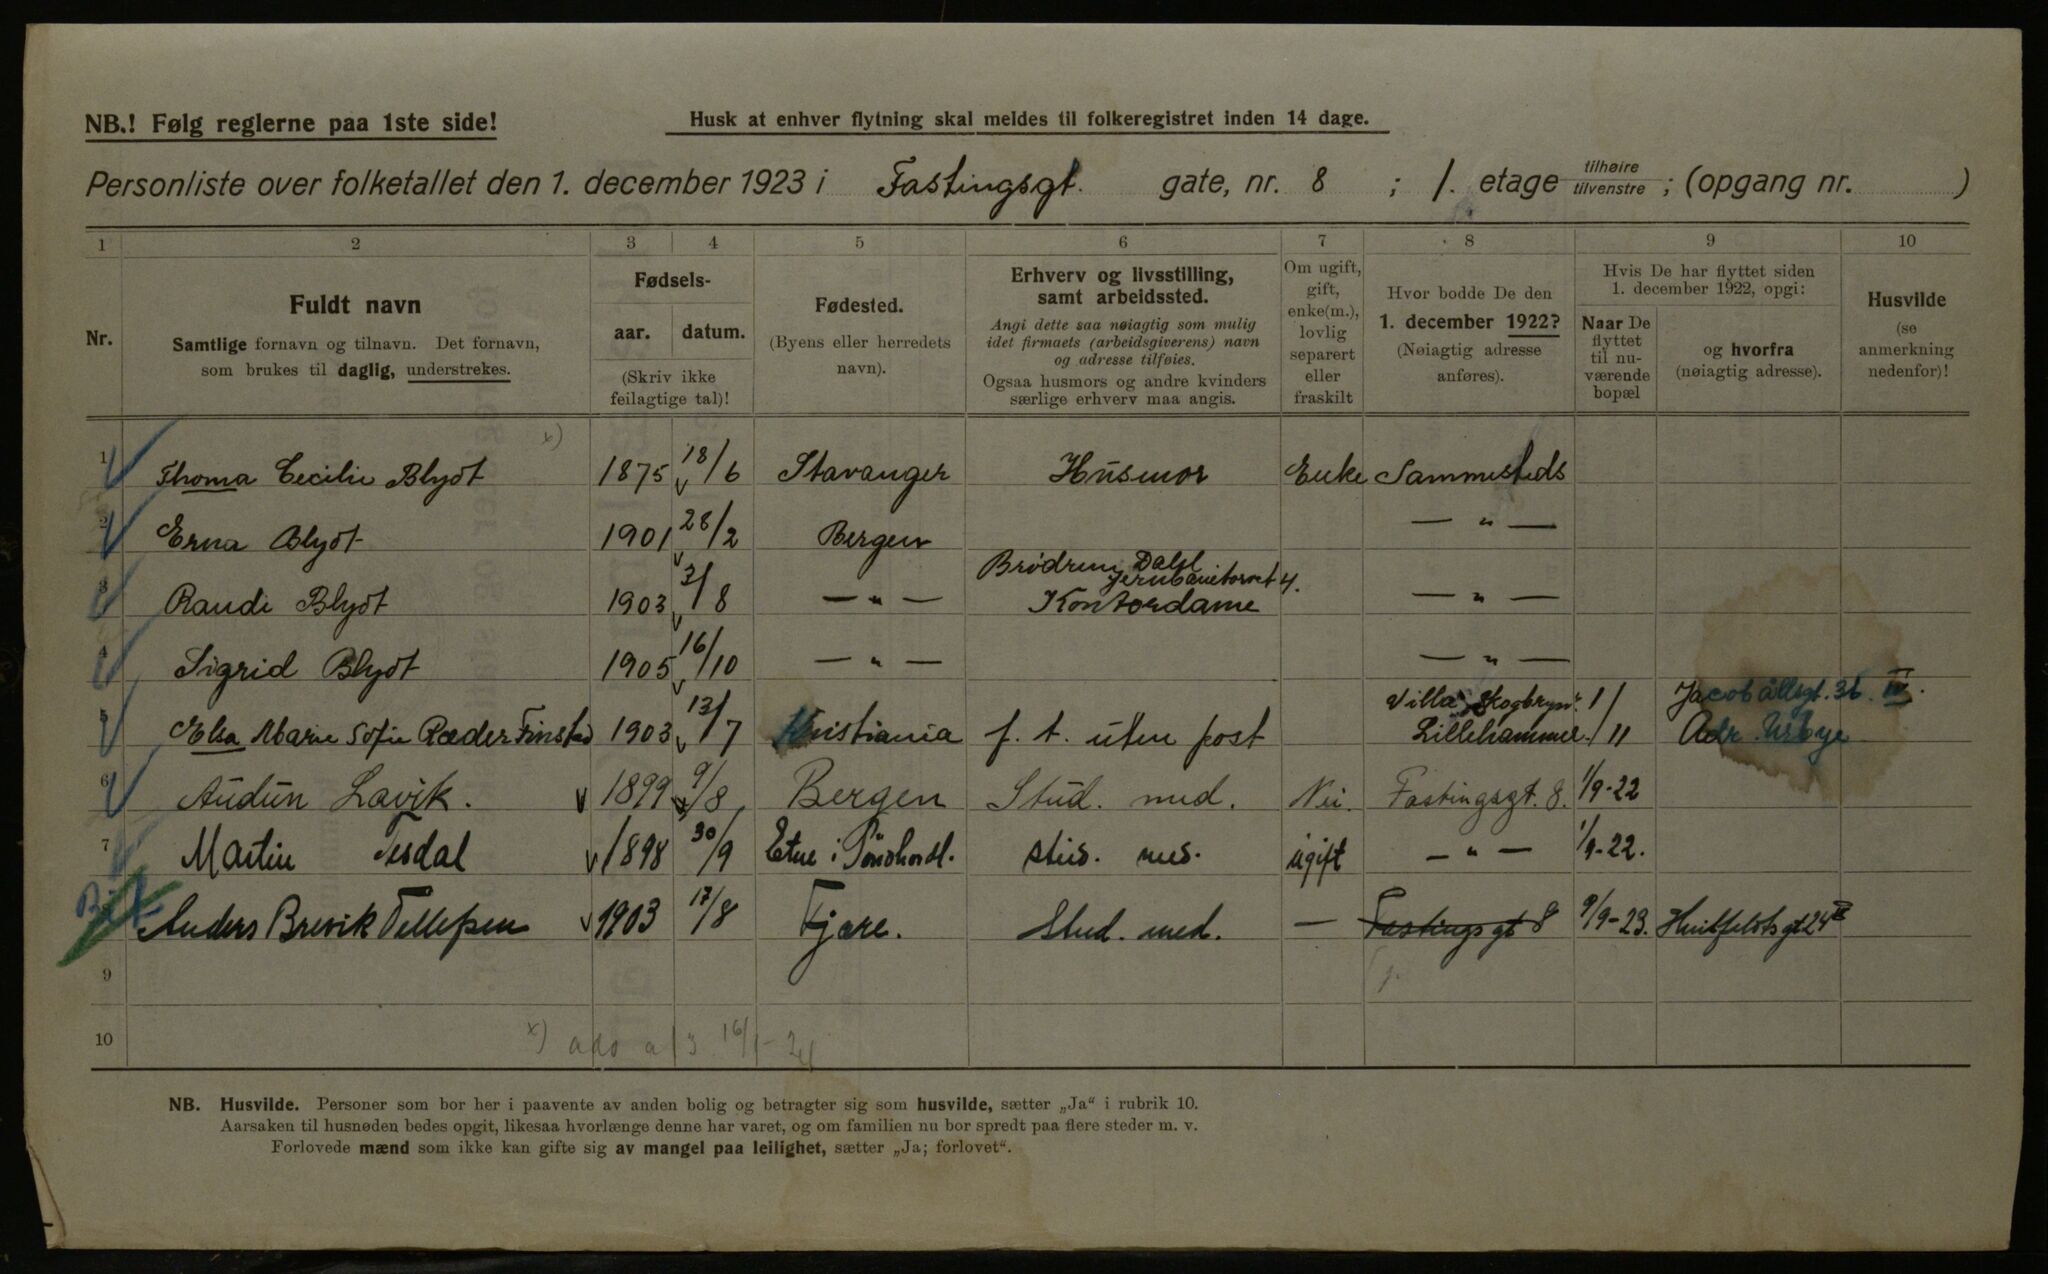 NB.! Følg reglerne paa 1ste side!
Husk at enhver flytning skal meldes til folkeregistret inden 14 dage.
Personliste over folketallet den 1. december 1923 i Fastingsgt. gate, nr. 8 ; 1. etage tilhøire tilvenstre ; (opgang nr. )
1 2 3 4 5 6 7 8 9 10
Nr.
Fuldt navn
Samtlige fornavn og tilnavn. Det fornavn,
som brukes til daglig, understrekes.
Fødsels-
aar. datum.
(Skriv ikke
feilagtige tal)!
Fødested.
(Byens eller herredets
navn).
Erhverv og livsstilling,
samt arbeidssted.
Angi dette saa nøiagtig som mulig
idet firmaets (arbeidsgiverens) navn
og adresse tilføies.
Ogsaa husmors og andre kvinders
særlige erhverv maa angis.
Om ugift,
gift,
enke(m.),
lovlig
separert
eller
fraskilt
Hvor bodde De den
1. december 1922?
(Nøiagtig adresse
anføres).
Hvis De har flyttet siden
1. december 1922, opgi:
Naar De
flyttet
til nu-
værende
bopæl
og hvorfra
(nøiagtig adresse).
Husvilde
(se
anmerkning
nedenfor)!
x)
1 Thoma Cecilie Blydt 1875 18/6 Stavanger Husmor Enke Sammesteds
2 Erna Blydt 1901 28/2 Bergen — " —
Brødrene Dahl
Jernbanetorvet 4.
3 Randi Blydt 1903 3/8 — " — Kontordame — " —
4 Sigrid Blydt 1905 16/10 — " — — " —
Villa Skogbryn 1/ Jacob Allsgt. 36 IV.
5 Elsa Marie Sofie Ræder Finstad 1903 13/7 Kristiania f. t. uten post Lillehammer. /11 Adr.
6 Audun Lavik. 1899 9/8 Bergen Stud. med. Nei. Fastingsgt. 8. 1/9-22
7 Martin Tesdal 1898 30/9 Etne i Søndhordl. stud. med. ugift — " — 1/9-22.
8 Anders Brevik Tellefsen 1903 17/8 Fjære. Stud. med. — Fastingsgt 8 9/9-23. Huitfeldtsgt 24 II
9
10
x) 16/1-24
NB. Husvilde. Personer som bor her i paavente av anden bolig og betragter sig som husvilde, sætter „Ja“ i rubrik 10.
Aarsaken til husnøden bedes opgit, likesaa hvorlænge denne har varet, og om familien nu bor spredt paa flere steder m. v.
Forlovede mænd som ikke kan gifte sig av mangel paa leilighet, sætter „Ja; forlovet“.